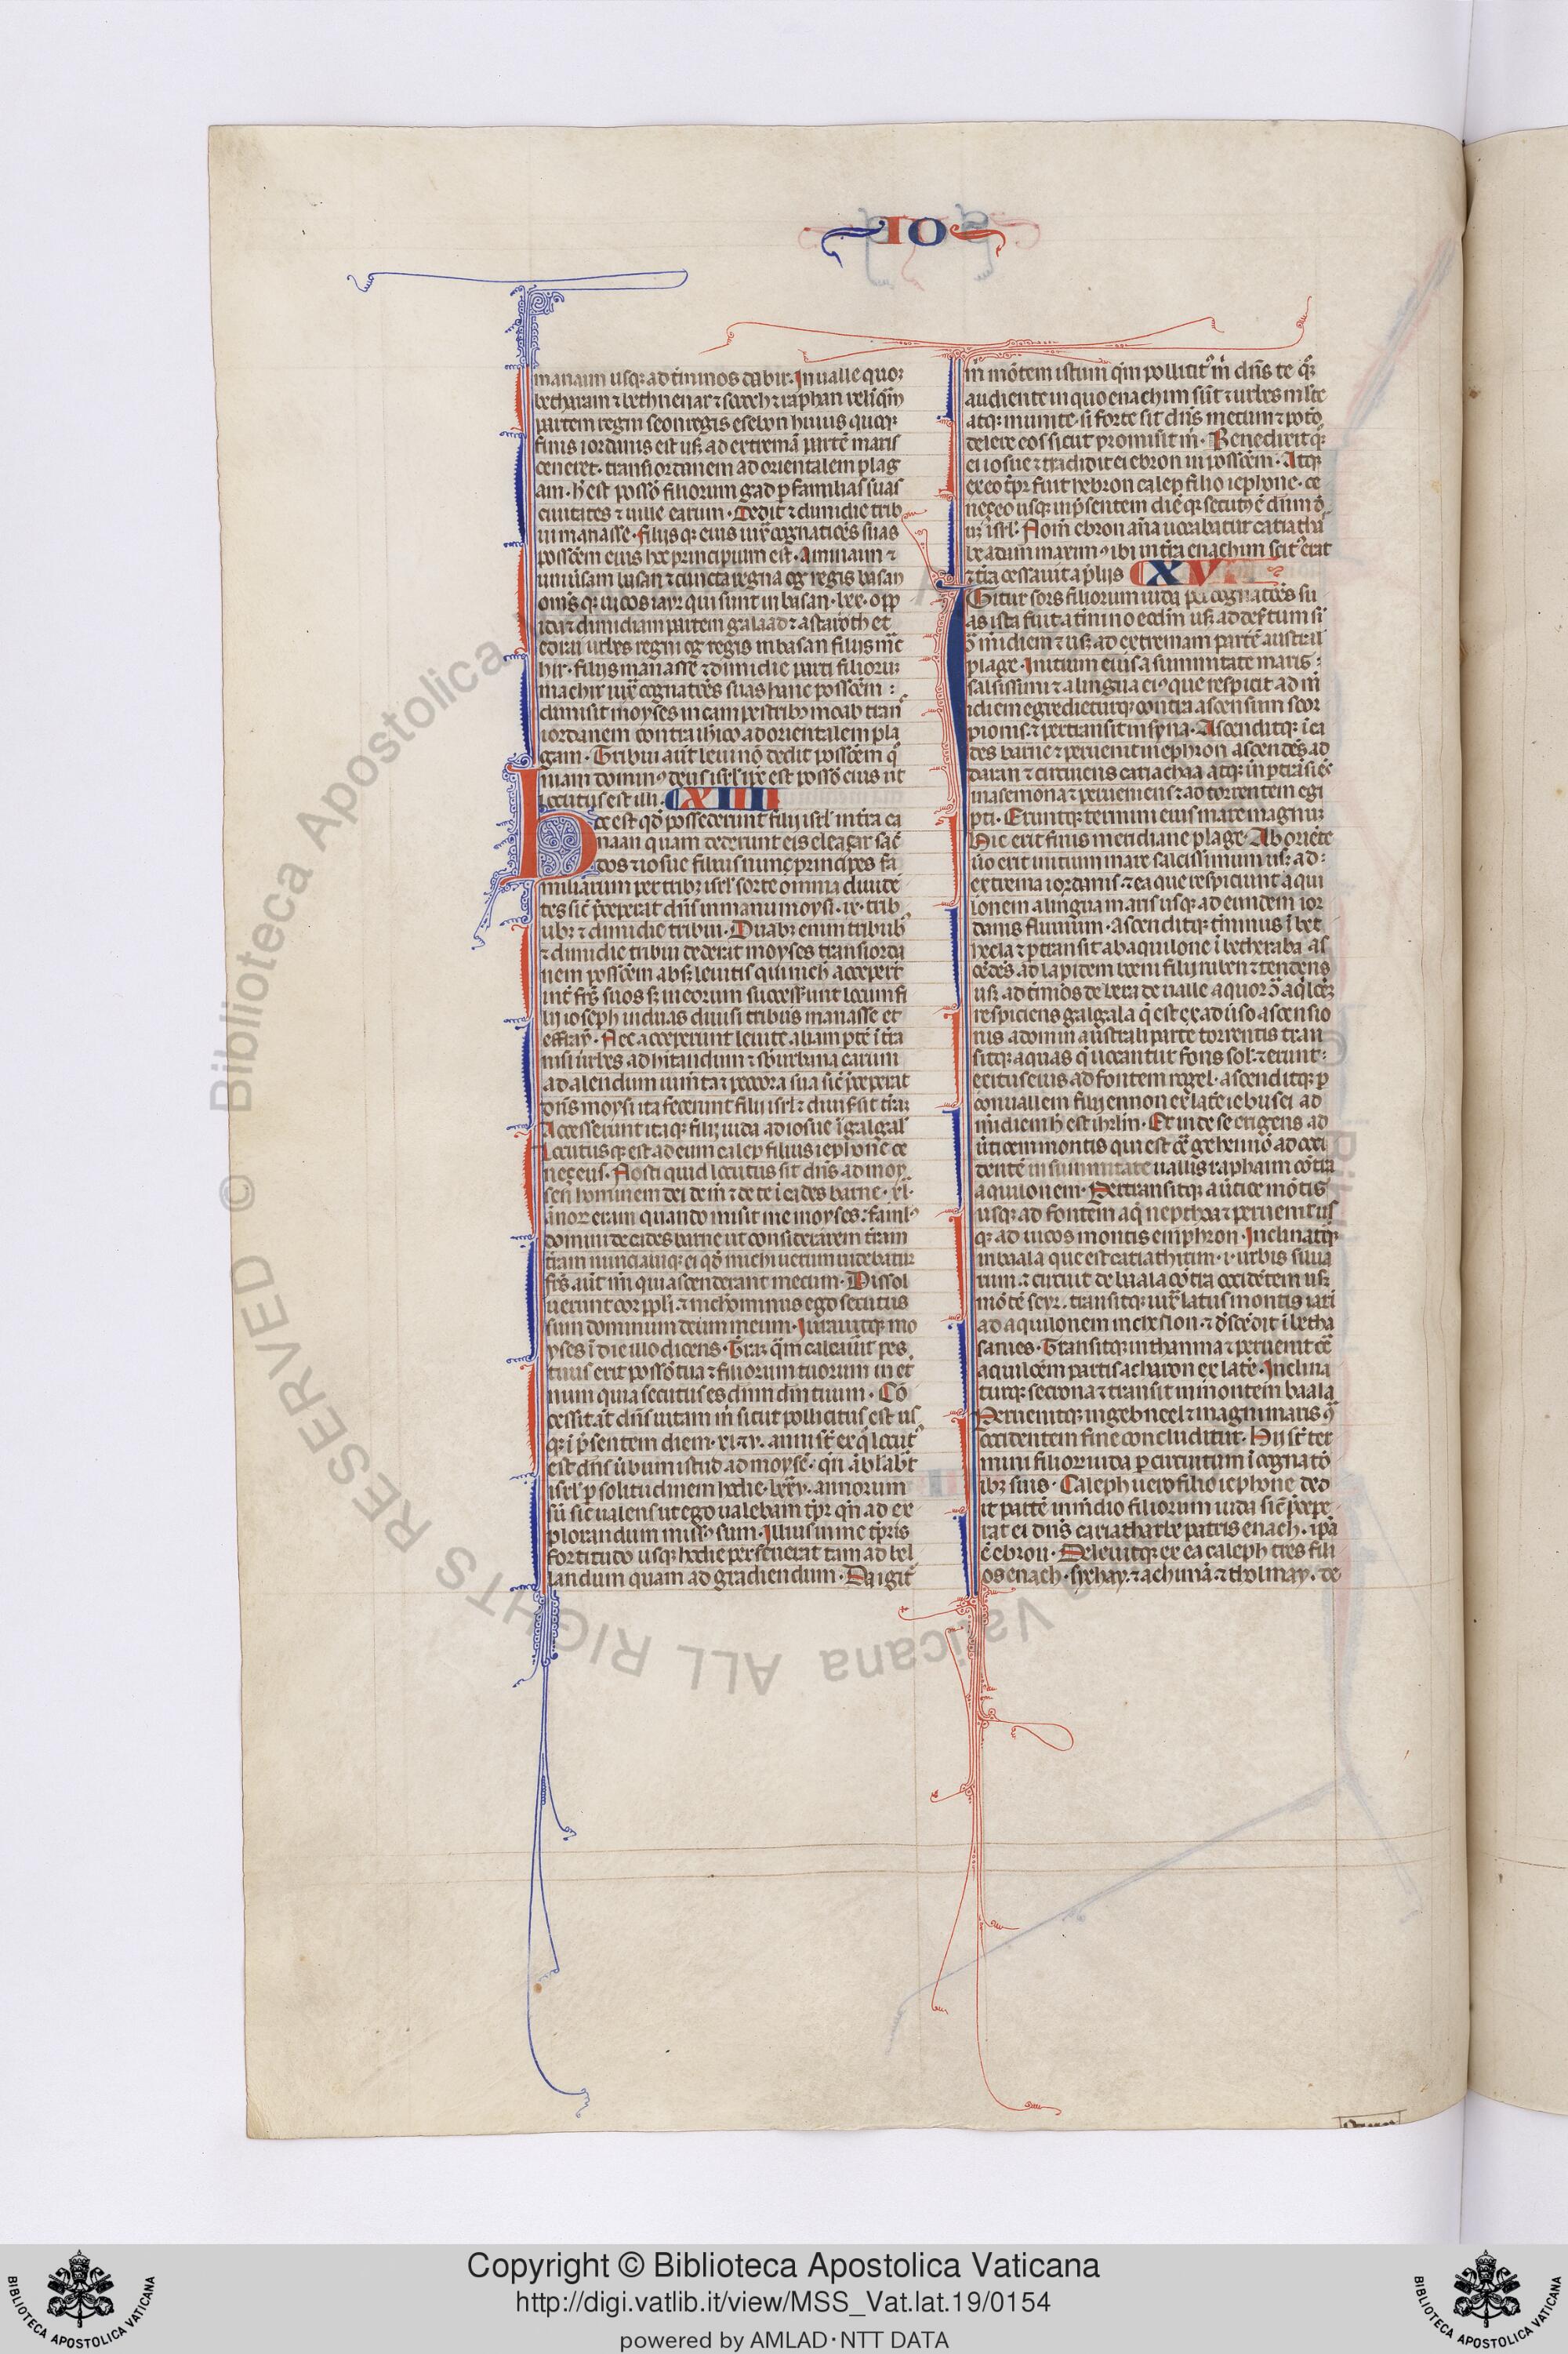 IO
manaim usq; ad t̄minos dabir. In ualle quoq;
betharam ⁊ bethnemar ⁊ socoth ⁊ saphan reliq̄m
partem regni seon regis esebon huius quoq;
finis iordanis est usq; ad extremā partē maris
ceneret. trans iordanem ad orientalem plag
am. h̄ est possō filiorum gad p familias suas
ciuitates ⁊ uille earum. Dedit ⁊ dimidie trib
ui manasse. filijsq; eius iux̄ cognatiōes suas
possc̄em eius hoc principium est. Amanaim ⁊
uniūsam basan ⁊ cuncta regna og regis basan
om̄s q; uicos iayr qui sunt in basan. lx. opp
ida ⁊ dimidiam partem galaad ⁊ astaroth et
edrai urbes regni og regis in basan filijs mc̄
hir. filijs manasse ⁊ dimidie parti filioruꝫ
machir iux̄ cognatiōes suas hanc possc̄em :
diuisit moyses in campestribꝫ moab tran
iordanem contra ih̄ico ad orientalem pla
gam. Tribui aūt leui nō dedit possc̄em q̄
niam dominꝰ deus isrl̄ ip̄e est possō eius ut
locutus est illi. CXIIII
Hoc est qd̄ possederunt filij isrl̄ in t̄ra ca
naan quam dederunt eis eleazar sac̄
dos ⁊ iosue filius nun ⁊ principes fa
miliarum per tribꝫ isrl̄ sorte omnia diuidē
tes sic̄ p̄ceperat dn̄s in manu moysi. ix. trib
ubꝫ ⁊ dimidie tribui. Duabꝫ enim tribubꝫ
⁊ dimidie tribui dederat moyses trans iorda
nem possc̄em absq; leuitis qui nich̄ acceper̄t
int̄ frēs suos sꝫ in eorum successerunt locum fi
lij ioseph in duas diuisi tribus manasse et
effraym. Nec acceperunt leuite aliam ptē ī t̄ra
nisi urbes ad hītandum ⁊ sb̄urbana earum
ad alendum iumta ⁊ pecora sua sic̄ p̄ceperat
dn̄s moysi ita fecerunt filij isrl̄ ⁊ diuiserūt t̄raꝫ
Accesserunt itaq; filij iuda ad iosue ī galgal
Locutusq; est ad eum calep filius iephone ce
nezeus. Nosti quid locutus sit dn̄s ad moy
sen hominem dei de m̄ ⁊ de te ī cades barne. xl.
ānoꝝ eram quando misit me moyses famlꝰ
domini de cades barne ut considerarem t̄ram
t̄ram nunciauiq; ei qd̄ michi uerum uidebatur
frēs aūt mi qui ascenderant mecum. Dissol
uerunt cor ppl̄i ⁊ nichominus ego secutus
sum dominum deum meum. Iurauitq; mo
yses ī die illo dicens. Traꝫ q̄m calcauit pes
tuus erit possō tua ⁊ filiorum tuorum in et
num quia secutus es dn̄m dm̄ tuum. Cō
cessit āt dn̄s uitam m̄ sicut pollicitus est us
q; ī p̄sentem diem. xl. ⁊ v. anni st̄ ex q̄ locut
est dn̄s ūbum istud ad moysē. qn̄ ābl̄ab̄t
isrl̄ p solitudinem hodie. lxxxv. annorum
sū sic̄ ualens ut ego ualebam tp̄r qn̄ ad ex
plorandum missꝰ sum. Illius in me tp̄ris
fortitudo usq; hodie perseuerat tam ad bel
landum quam ad gradiendum. Da igit̄
m̄ mōtem istum q̄m pollicitꝰ m̄ dn̄s te q̄q;
audiente in quo enachim sūt ⁊ urbes mlte
atq; munite. si forte sit dn̄s mecum ⁊ potō
delere eos sicut promisit m̄. Benedixit q;
ei iosue ⁊ tradidit ei ebron in possc̄em. Atq;
ex eo tp̄r fuit hebron calep filio iephone. ce
nezeo usq; in p̄sentem diē q; secutꝰ ē dn̄m d̄
uꝫ isrl̄. Nom̄ ebron an̄a uocabatur cariathar
be adam maximꝰ ibi int̄ra enachim scit̄ erat
⁊ t̄ra cessauit a p̄lijs CXV
Igitur sors filiorum iuda per cognatiōes su
as ista fuit a t̄mino edom usq; ad des̄tum si
n̄ m̄idiem ⁊ usq; ad extremam partē austral
plage. Initium eius a summitate maris :
salsissimi ⁊ a lingua eiꝰ que respicit ad m̄
idiem egrediturq; contra ascensum scor
pionis. ⁊ pertransit in syna. Ascenditq; ī ca
des barne ⁊ peruenit in ephron ascendēs ad
daran ⁊ circuiens catiachaa atq; in p̄trāsiēs
in asemona ⁊ perueniens ⁊ ad torrentem egi
pti. Eruntq; termini eius mare magnuꝫ
Hic erit finis meridiane plage. Ab oriēte
ūo erit initium mare salcissimum usq; ad :
extrema iordanis. ⁊ ea que respiciunt aqui
lonem a lingua maris usq; ad eundem ior
danis fluuium. ascenditq; t̄minus ī bet
hecla ⁊ p̄transit ab aquilone ī betheraba as
cēdēs ad lapidem boem filij ruben ⁊ tendens
usq; ad t̄minōs debera de ualle aquor̄
respiciens galgala q̄ est ex ad ūso ascensio
nis adomin australi parte torrentis tran
sitq; aquas q̄ uocantur fons sol. ⁊ erunt :
exitus eius ad fontem rogel. ascenditq; p
conuallem filij ennon ex late iebusei ad
m̄idiem h̄ est ihrlm̄. Et inde se erigens ad
ūticem montis qui est cō gehennō ad occi
dentē in summitate uallis raphaim cōtra
aquilonem. Pertransitq; a ūtice mōtis
usq; ad fontem aq̄ nepthoa ⁊ peruenit us
q; ad uicos montis emphron. Inclinatq;
in baala que est cariathirim. i. urbis silua
rum. ⁊ circuit de baala cōtra occidētem usq;
mōtē seyr. transitq; iux̄ latus montis iari
ad aquilonem in clesion. ⁊ dsc̄edit ī betha
sames. Transitq; in thamna ⁊ peruenit cō
aquilōem partis acharon ex late. Inclina
turq; secrona ⁊ transit in montem baala
Peruenitq; in gebneel ⁊ magni maris q̄
occidentem fine concluditur. Hij st̄ ter
mini filioꝝ iuda p circuitum ī cognatō
ibꝫ suis. Caleph uero filio iephone ded
it partē in m̄dio filiorum iuda sic̄ p̄cepe
rat ei dn̄s cariatharbe patris enach. ip̄a
ē ebron. Deleuitq; ex ea caleph tres fili
os enach. syehay. ⁊ achimā ⁊ tholmay. de
Copyright © Biblioteca Apostolica Vaticana
http://digi.vatlib.it/view/MSS_Vat.lat.19/0154
powered by AMLAD·NTT DATA
BIBLIOTECA APOSTOLICA VATICANA
BIBLIOTECA APOSTOLICA VATICANA
© Biblioteca Apostolica Vaticana ALL RIGHTS RESERVED